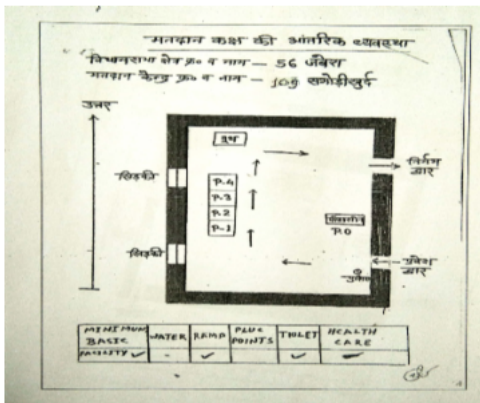 मतदान कक्ष की आंतरिक व्यवस्था
विधानसभा क्षेत्र क्र० व नाम - 56 जबेरा
मतदान केन्द्र क्र० व नाम - 109 सगोड़ीखुर्द
उत्तर
बूथ
निर्गम द्वार
खिड़की
P-4
P-3
P-2
P-1
P.O
खिड़की
प्रवेश द्वार
MINIMUM BASIC FACILITY ✓
WATER -
RAMP ✓
PLUG POINTS
TOILET ✓
HEALTH CARE ✓